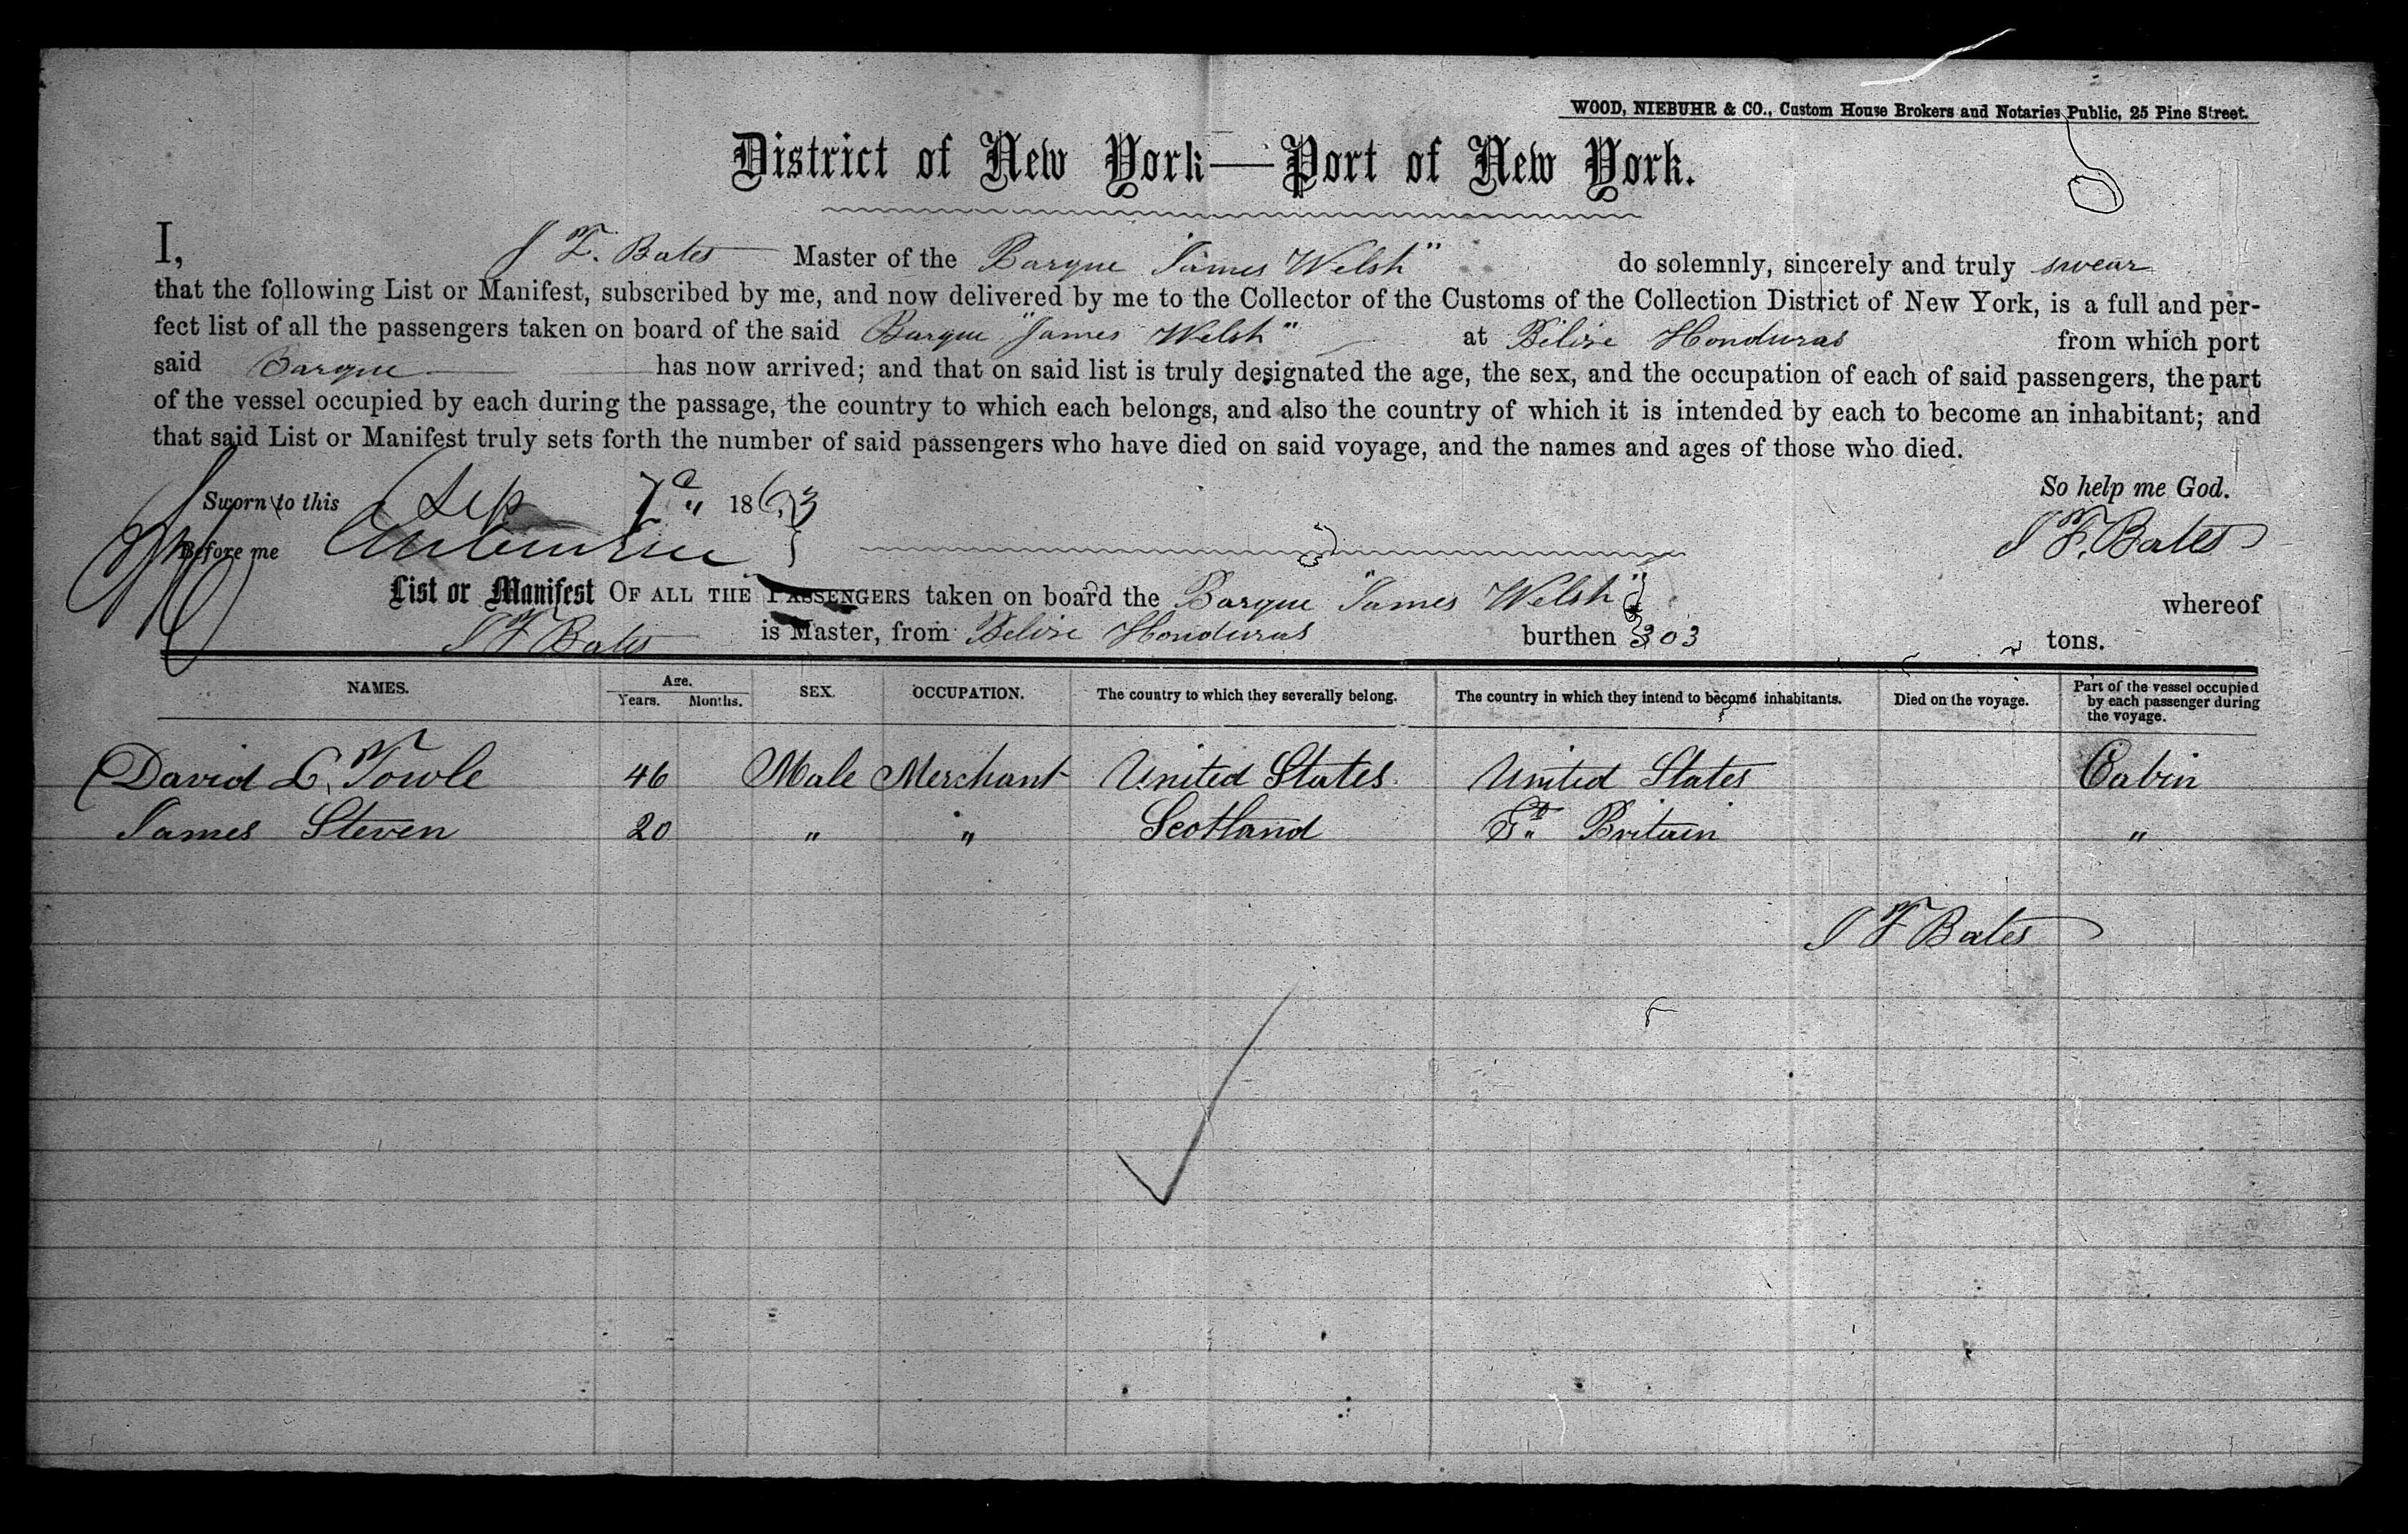 WOOD, NIEBUHR & CO., Custom House Brokers and Notaries Public, 25 Pine Street.
District of New York—Port of New York.
I, J F. Bates Master of the Barque "James Welsh" do solemnly, sincerely and truly swear
that the following List or Manifest, subscribed by me, and now delivered by me to the Collector of the Customs of the Collection District of New York, is a full and per-
fect list of all the passengers taken on board of the said Barque "James Welsh" at Belize Honduras from which port
said Barque has now arrived; and that on said list is truly designated the age, the sex, and the occupation of each of said passengers, the part
of the vessel occupied by each during the passage, the country to which each belongs, and also the country of which it is intended by each to become an inhabitant; and
that said List or Manifest truly sets forth the number of said passengers who have died on said voyage, and the names and ages of those who died.
So help me God.
Sworn to this Sep 7 1863
J F. Bates
Before me
List or Manifest OF ALL THE PASSENGERS taken on board the Barque "James Welsh" whereof
J F Bates is Master, from Belize Honduras burthen 303 tons.
NAMES. Age. Years. Months. SEX. OCCUPATION. The country to which they severally belong. The country in which they intend to become inhabitants. Died on the voyage. Part of the vessel occupied by each passenger during the voyage.
David L. Towle 46 Male Merchant United States United States Cabin
James Steven 20 " " Scotland Gt Britain "
J F Bates